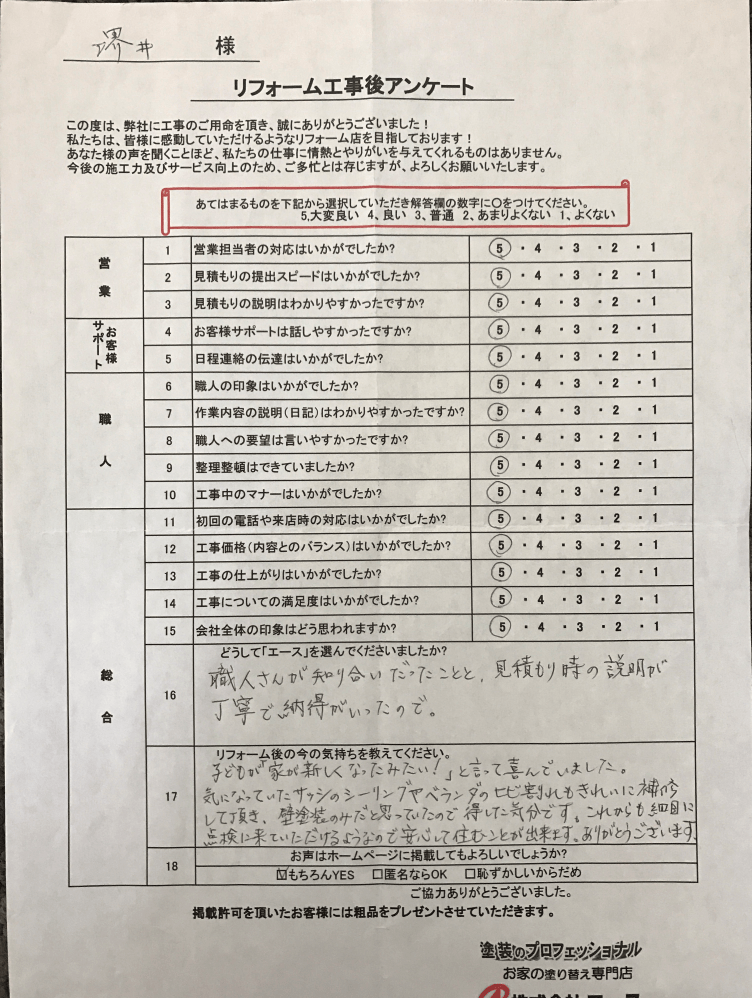 堺井 様
リフォーム工事後アンケート
この度は、弊社に工事のご用命を頂き、誠にありがとうございました！
私たちは、皆様に感動していただけるようなリフォーム店を目指しております！
あなた様の声を聞くことほど、私たちの仕事に情熱とやりがいを与えてくれるものはありません。
今後の施工力及びサービス向上のため、ご多忙とは存じますが、よろしくお願いいたします。
あてはまるものを下記から選択していただき解答欄の数字に〇をつけてください。
5,大変良い 4、良い 3、普通 2、あまりよくない 1、よくない
営業
1 営業担当者の対応はいかがでしたか? 5 ・ 4 ・ 3 ・ 2 ・ 1
2 見積もりの提出スピードはいかがでしたか? 5 ・ 4 ・ 3 ・ 2 ・ 1
3 見積もりの説明はわかりやすかったですか? 5 ・ 4 ・ 3 ・ 2 ・ 1
お客様サポート
4 お客様サポートは話しやすかったですか? 5 ・ 4 ・ 3 ・ 2 ・ 1
5 日程連絡の伝達はいかがでしたか? 5 ・ 4 ・ 3 ・ 2 ・ 1
職人
6 職人の印象はいかがでしたか? 5 ・ 4 ・ 3 ・ 2 ・ 1
7 作業内容の説明(日記)はわかりやすかったですか? 5 ・ 4 ・ 3 ・ 2 ・ 1
8 職人への要望は言いやすかったですか? 5 ・ 4 ・ 3 ・ 2 ・ 1
9 整理整頓はできていましたか? 5 ・ 4 ・ 3 ・ 2 ・ 1
10 工事中のマナーはいかがでしたか? 5 ・ 4 ・ 3 ・ 2 ・ 1
総合
11 初回の電話や来店時の対応はいかがでしたか? 5 ・ 4 ・ 3 ・ 2 ・ 1
12 工事価格(内容とのバランス)はいかがでしたか? 5 ・ 4 ・ 3 ・ 2 ・ 1
13 工事の仕上がりはいかがでしたか? 5 ・ 4 ・ 3 ・ 2 ・ 1
14 工事についての満足度はいかがでしたか? 5 ・ 4 ・ 3 ・ 2 ・ 1
15 会社全体の印象はどう思われますか? 5 ・ 4 ・ 3 ・ 2 ・ 1
16 どうして「エース」を選んでくださいましたか?
職人さんが知り合いだったことと、見積もり時の説明が
丁寧で納得がいったので。
17 リフォーム後の今の気持ちを教えてください。
子どもが「家が新しくなったみたい！」と言って喜んでいました。
気になっていたサッシのシーリングやベランダのヒビ割れもきれいに補修
して頂き、壁塗装のみだと思っていたので得した気分です。これからも細目に
点検に来ていただけるようなので安心して住むことが出来ます。ありがとうございます。
18 お声はホームページに掲載してもよろしいでしょうか?
☑もちろんYES □匿名ならOK □恥ずかしいからだめ
ご協力ありがとうございました。
掲載許可を頂いたお客様には粗品をプレゼントさせていただきます。
塗装のプロフェッショナル
お家の塗り替え専門店
株式会社エース